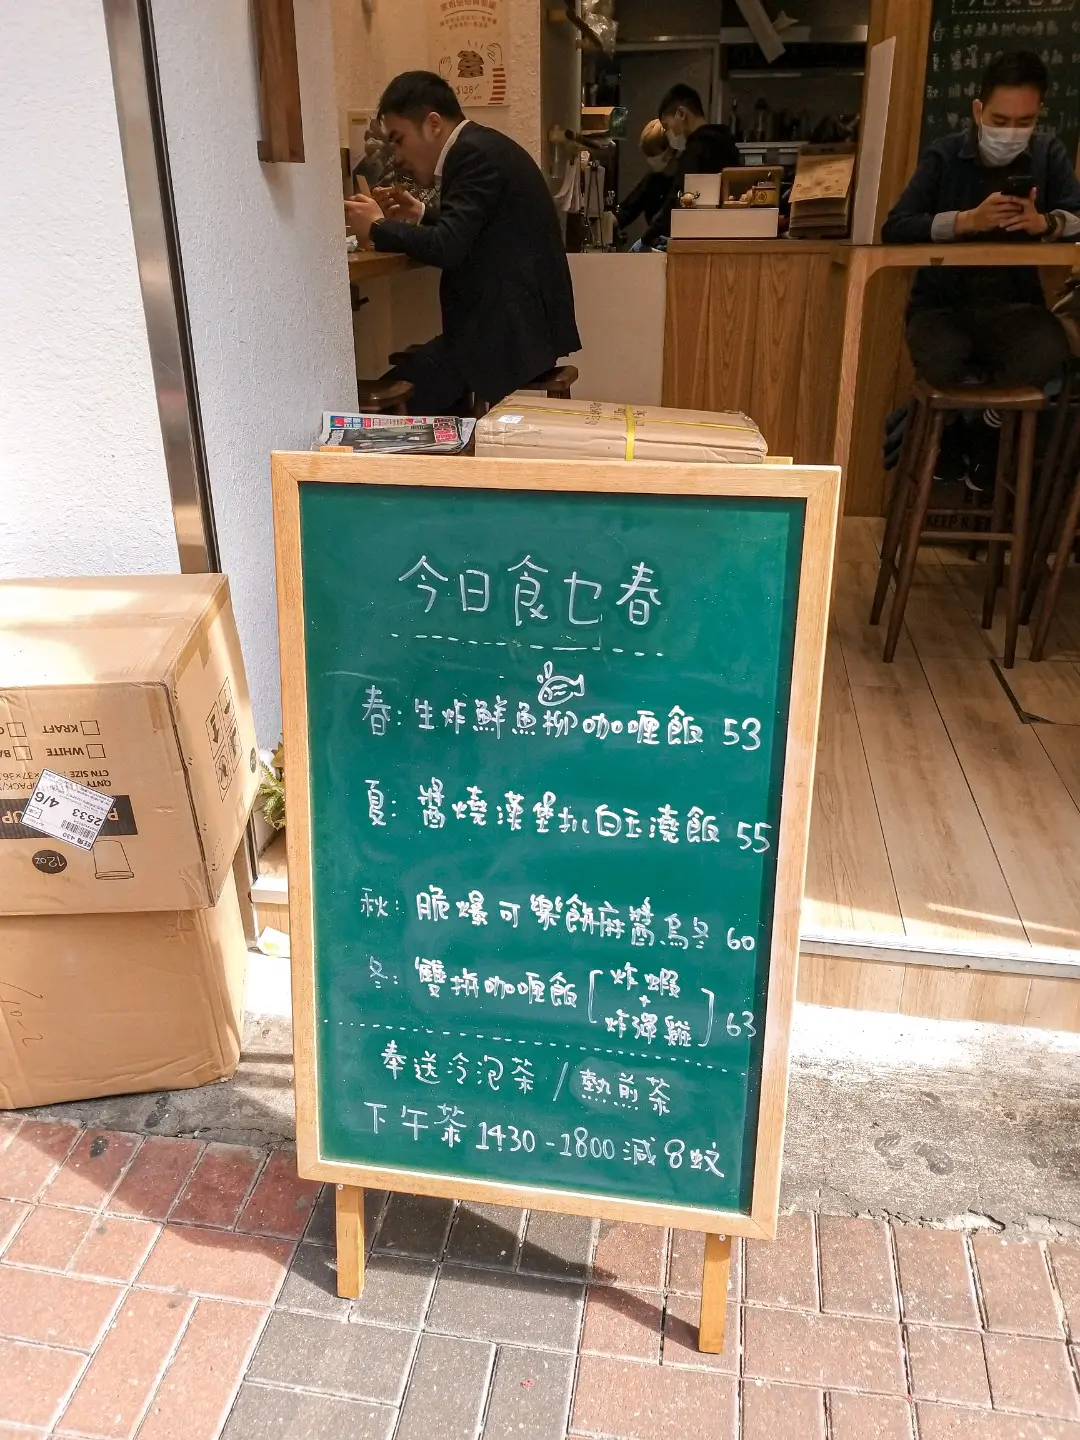 $128
今日食乜春
春：生炸鮮魚柳咖喱飯 53
夏：醬燒漢堡扒白玉澆飯 55
秋：脆爆可樂餅麻醬烏冬 60
冬：雙拼咖喱飯 [炸蝦 + 炸澤雞] 63
奉送冷泡茶 / 熱煎茶
下午茶 1430 - 1800 減 8 蚊
KRAFT
WHITE
CTN SIZE
QNTY
4/6
2533
12oz
KEEP